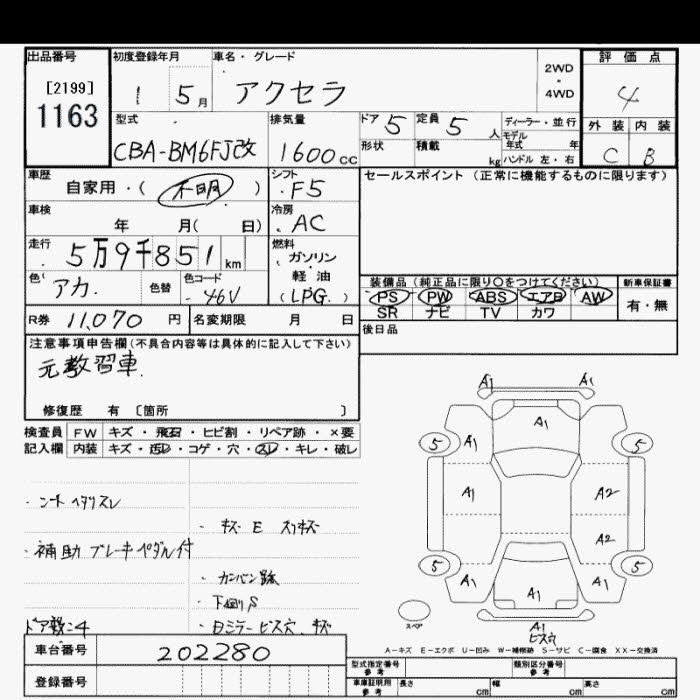 出品番号 初度登録年月 車名・グレード 2WD・4WD 評価点
[2199] 1163 1 5月 アクセラ 4
型式 排気量 ドア 5 定員 5人 ディーラー・並行 外装 内装
CBA-BM6FJ改 1600cc 形状 積載 kg モデル年式 年 ハンドル 左・右 C B
車歴 シフト セールスポイント(正常に機能するものに限ります)
自家用・( 不明 ) F5
車検 冷房
年 月( 日) AC
走行 5万9千851km 燃料
ガソリン
軽油
(LPG.)
色 アカ. 色替 色コード 46V
装備品(純正品に限り〇をつけてください) 新車保証書
PS PW ABS エアB AW 有・無
SR ナビ TV カワ
R券 11,070円 名変期限 月 日
後日品
注意事項申告欄(不具合内容等は具体的に記入して下さい)
元教習車.
修復歴 有 〔箇所 〕
検査員 FW キズ・飛石・ヒビ割・リペア跡・×要
記入欄 内装 キズ・汚レ・コゲ・穴・スレ・キレ・破レ
A1 A1
A1
5 A1 A1 5
A1 A2
A2
5 A1 A1 A1 5
スペア
A1
ビス穴
・シートヘタリスレ
・キズ E スリキズ
・補助ブレーキペダル付
・カンバン跡
・下廻りS
ドア数=4
・ミラービス穴、キズ
A-キズ E-エクボ U-凹み W-補修跡 S-サビ C-腐食 XX-交換済
車台番号 202280
登録番号
型式指定番号 参考 類別区分番号 参考
車庫証明用 参考 長さ cm 幅 cm 高さ cm